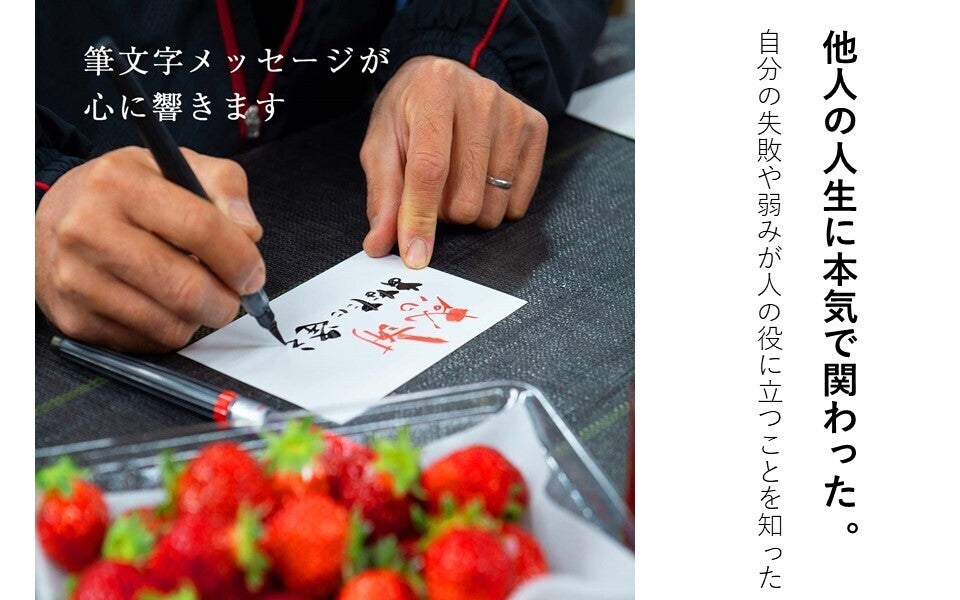 他人の人生に本気で関わった。
自分の失敗や弱みが人の役に立つことを知った
筆文字メッセージが
心に響きます
感謝
あなたに